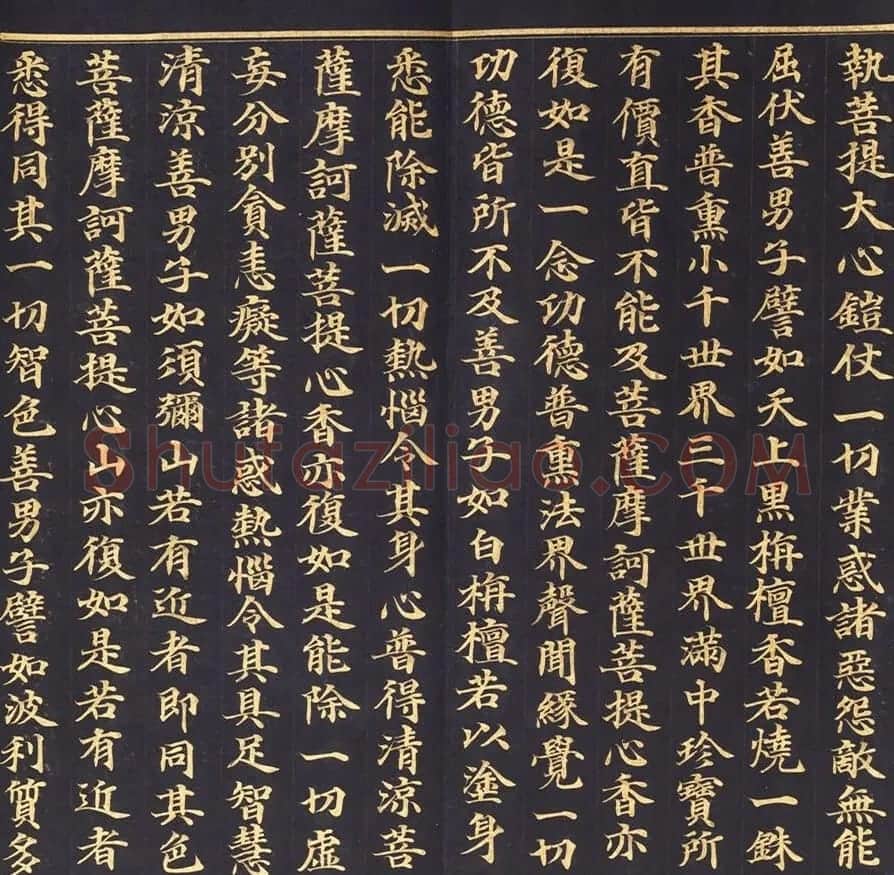 執菩提大心鎧仗一切業惑諸惡怨敵無能
屈伏善男子譬如天上黑栴檀香若燒一銖
其香普熏小千世界三千世界滿中珍寶所
有價直皆不能及菩薩摩訶薩菩提心香亦
復如是一念功德普熏法界聲聞緣覺一切
功德皆所不及善男子如白栴檀若以塗身
悉能除滅一切熱惱令其身心普得清涼菩
薩摩訶薩菩提心香亦復如是能除一切虛
妄分別貪恚癡等諸惑熱惱令其具足智慧
清涼善男子如須彌山若有近者即同其色
菩薩摩訶薩菩提心山亦復如是若有近者
悉得同其一切智色善男子譬如波利質多
Shufaziliao.COM